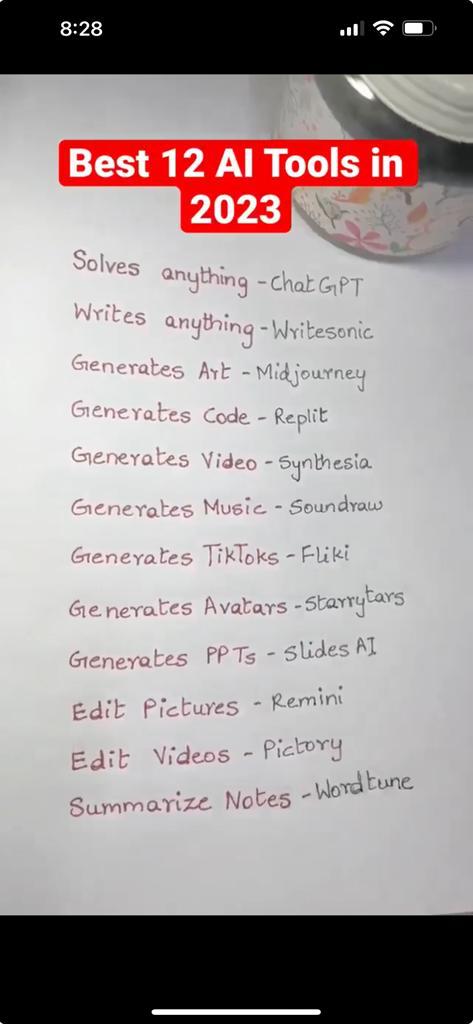 8:28
Best 12 AI Tools in
2023
Solves anything - ChatGPT
Writes anything - Writesonic
Generates Art - Midjourney
Generates Code - Replit
Generates Video - Synthesia
Generates Music - Soundraw
Generates TikToks - Fliki
Generates Avatars - Starrytars
Generates PPTs - Slides AI
Edit Pictures - Remini
Edit Videos - Pictory
Summarize Notes - Wordtune